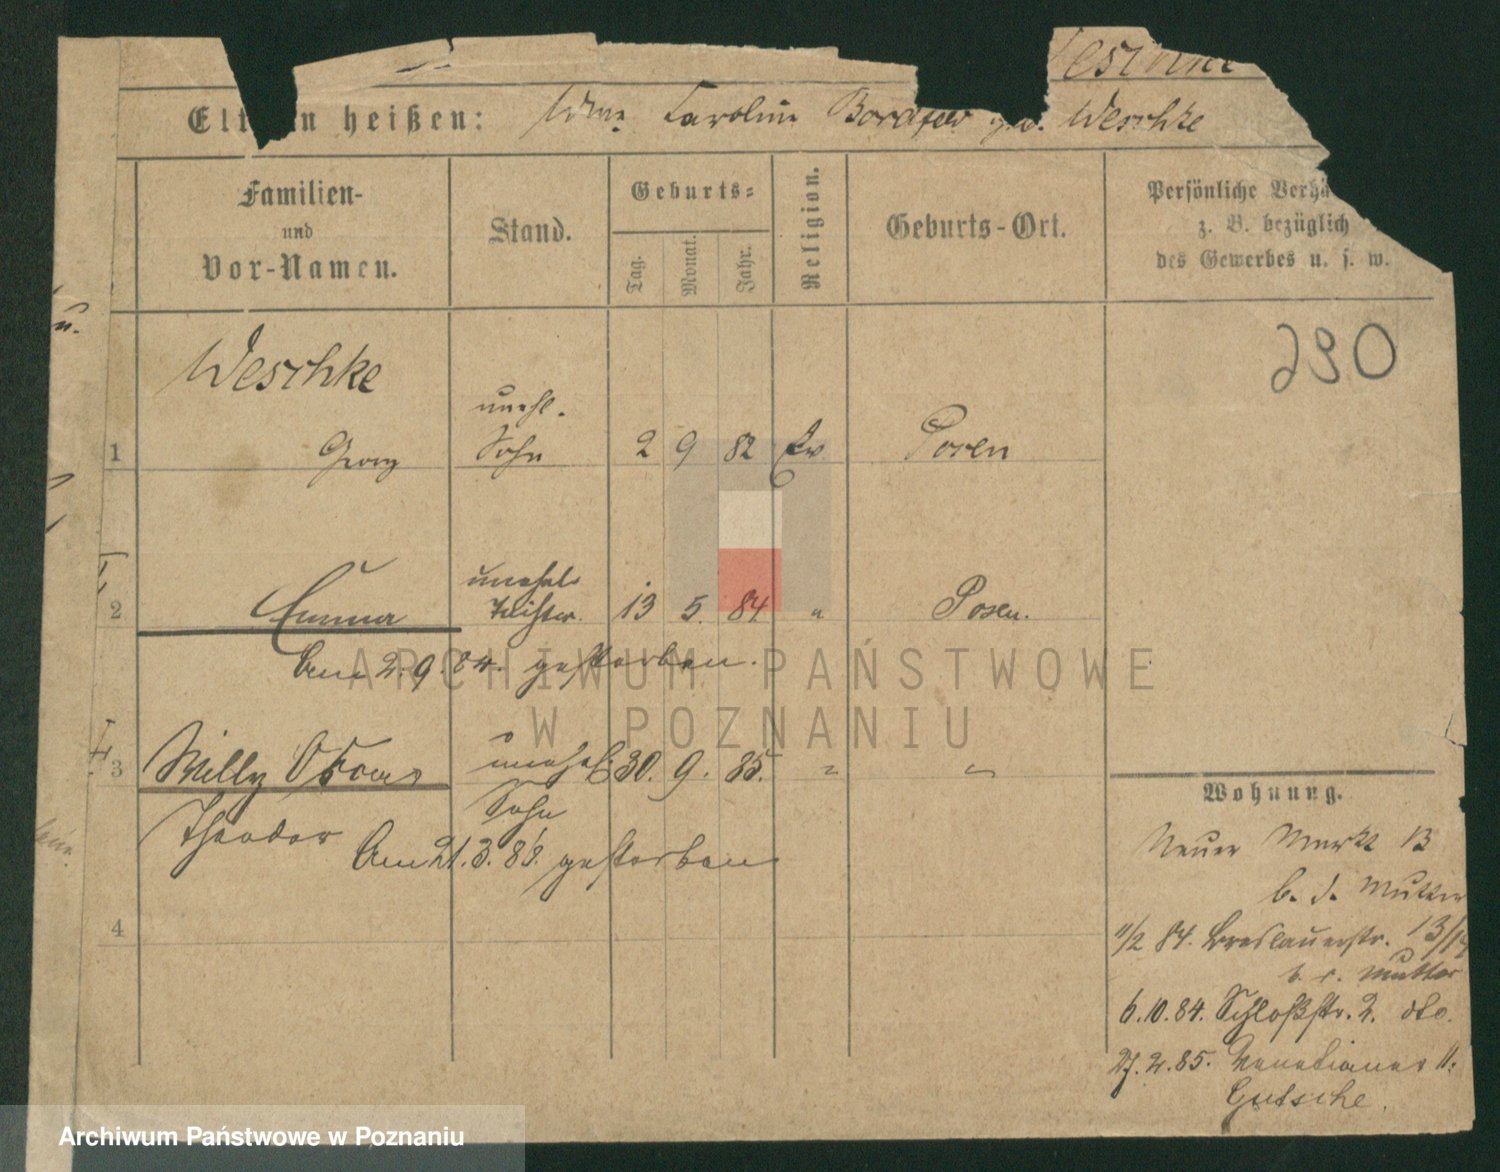 Eltern heißen: Wwe. Caroline geb. Weschke
Familien-
und
Vor-Namen.
Stand.
Geburts-
Tag.
Monat.
Jahr.
Religion.
Geburts-Ort.
Persönliche Verhä
z. B. bezüglich
des Gewerbes u. s. w.
u.
290
Weschke
unehl.
1 Georg Sohn 2 9 82 Ev Posen
unehel.
2 Emma Tochter 13 5. 84 " Posen.
Am 2.9.84. gestorben.
3 Willy Oskar unehel. 30. 9. 85. " "
Theodor Sohn
Am 21.3.88. gestorben
4
Wohnung.
Neuer Markt 13
b. d. Mutter
11/2 84. Breslauerstr. 13/14
b. d. Mutter
6.10.84. Schloßstr. 2. dto.
27.2.85. Venetianer
Gutsche.
ARCHIWUM PAŃSTWOWE
W POZNANIU
Archiwum Państwowe w Poznaniu